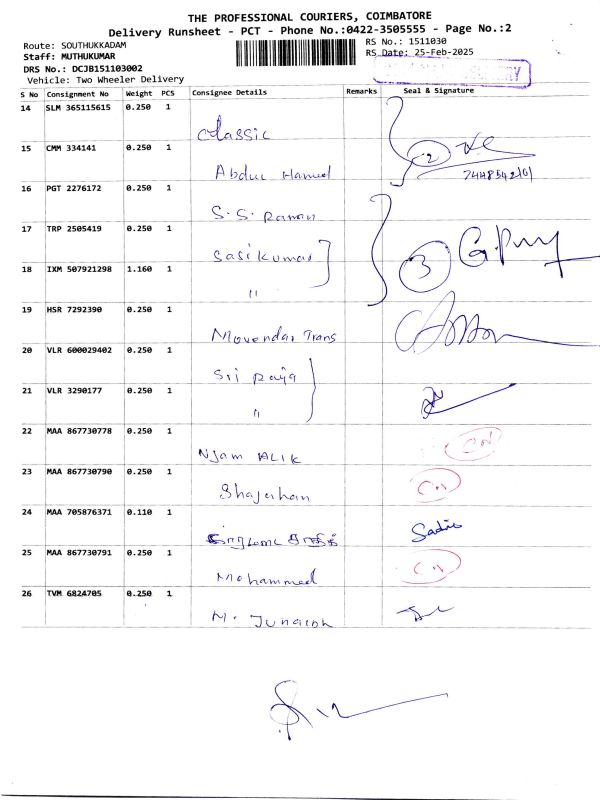 THE PROFESSIONAL COURIERS, COIMBATORE
Delivery Runsheet - PCT - Phone No.:0422-3505555 - Page No.:2
Route: SOUTHUKKADAM
RS No.: 1511030
Staff: MUTHUKUMAR
RS Date: 25-Feb-2025
DRS No.: DCJB151103002
Vehicle: Two Wheeler Delivery
S No Consignment No Weight PCS Consignee Details Remarks Seal & Signature
14 SLM 365115615 0.250 1
Classic
15 CMM 334141 0.250 1
2
Abdul Hameed
16 PGT 2276172 0.250 1
S.S. Raman
17 TRP 2505419 0.250 1
Sasikumar
3
18 IXM 507921298 1.160 1
"
19 HSR 7292390 0.250 1
Movendar Trans
20 VLR 600029402 0.250 1
Sri Raja
21 VLR 3290177 0.250 1
"
22 MAA 867730778 0.250 1
CN
Njam ALIK
23 MAA 867730790 0.250 1
Shajahan
CN
24 MAA 705876371 0.110 1
Sadic
25 MAA 867730791 0.250 1
CN
Mohammed
26 TVM 6824705 0.250 1
M. Junaidh